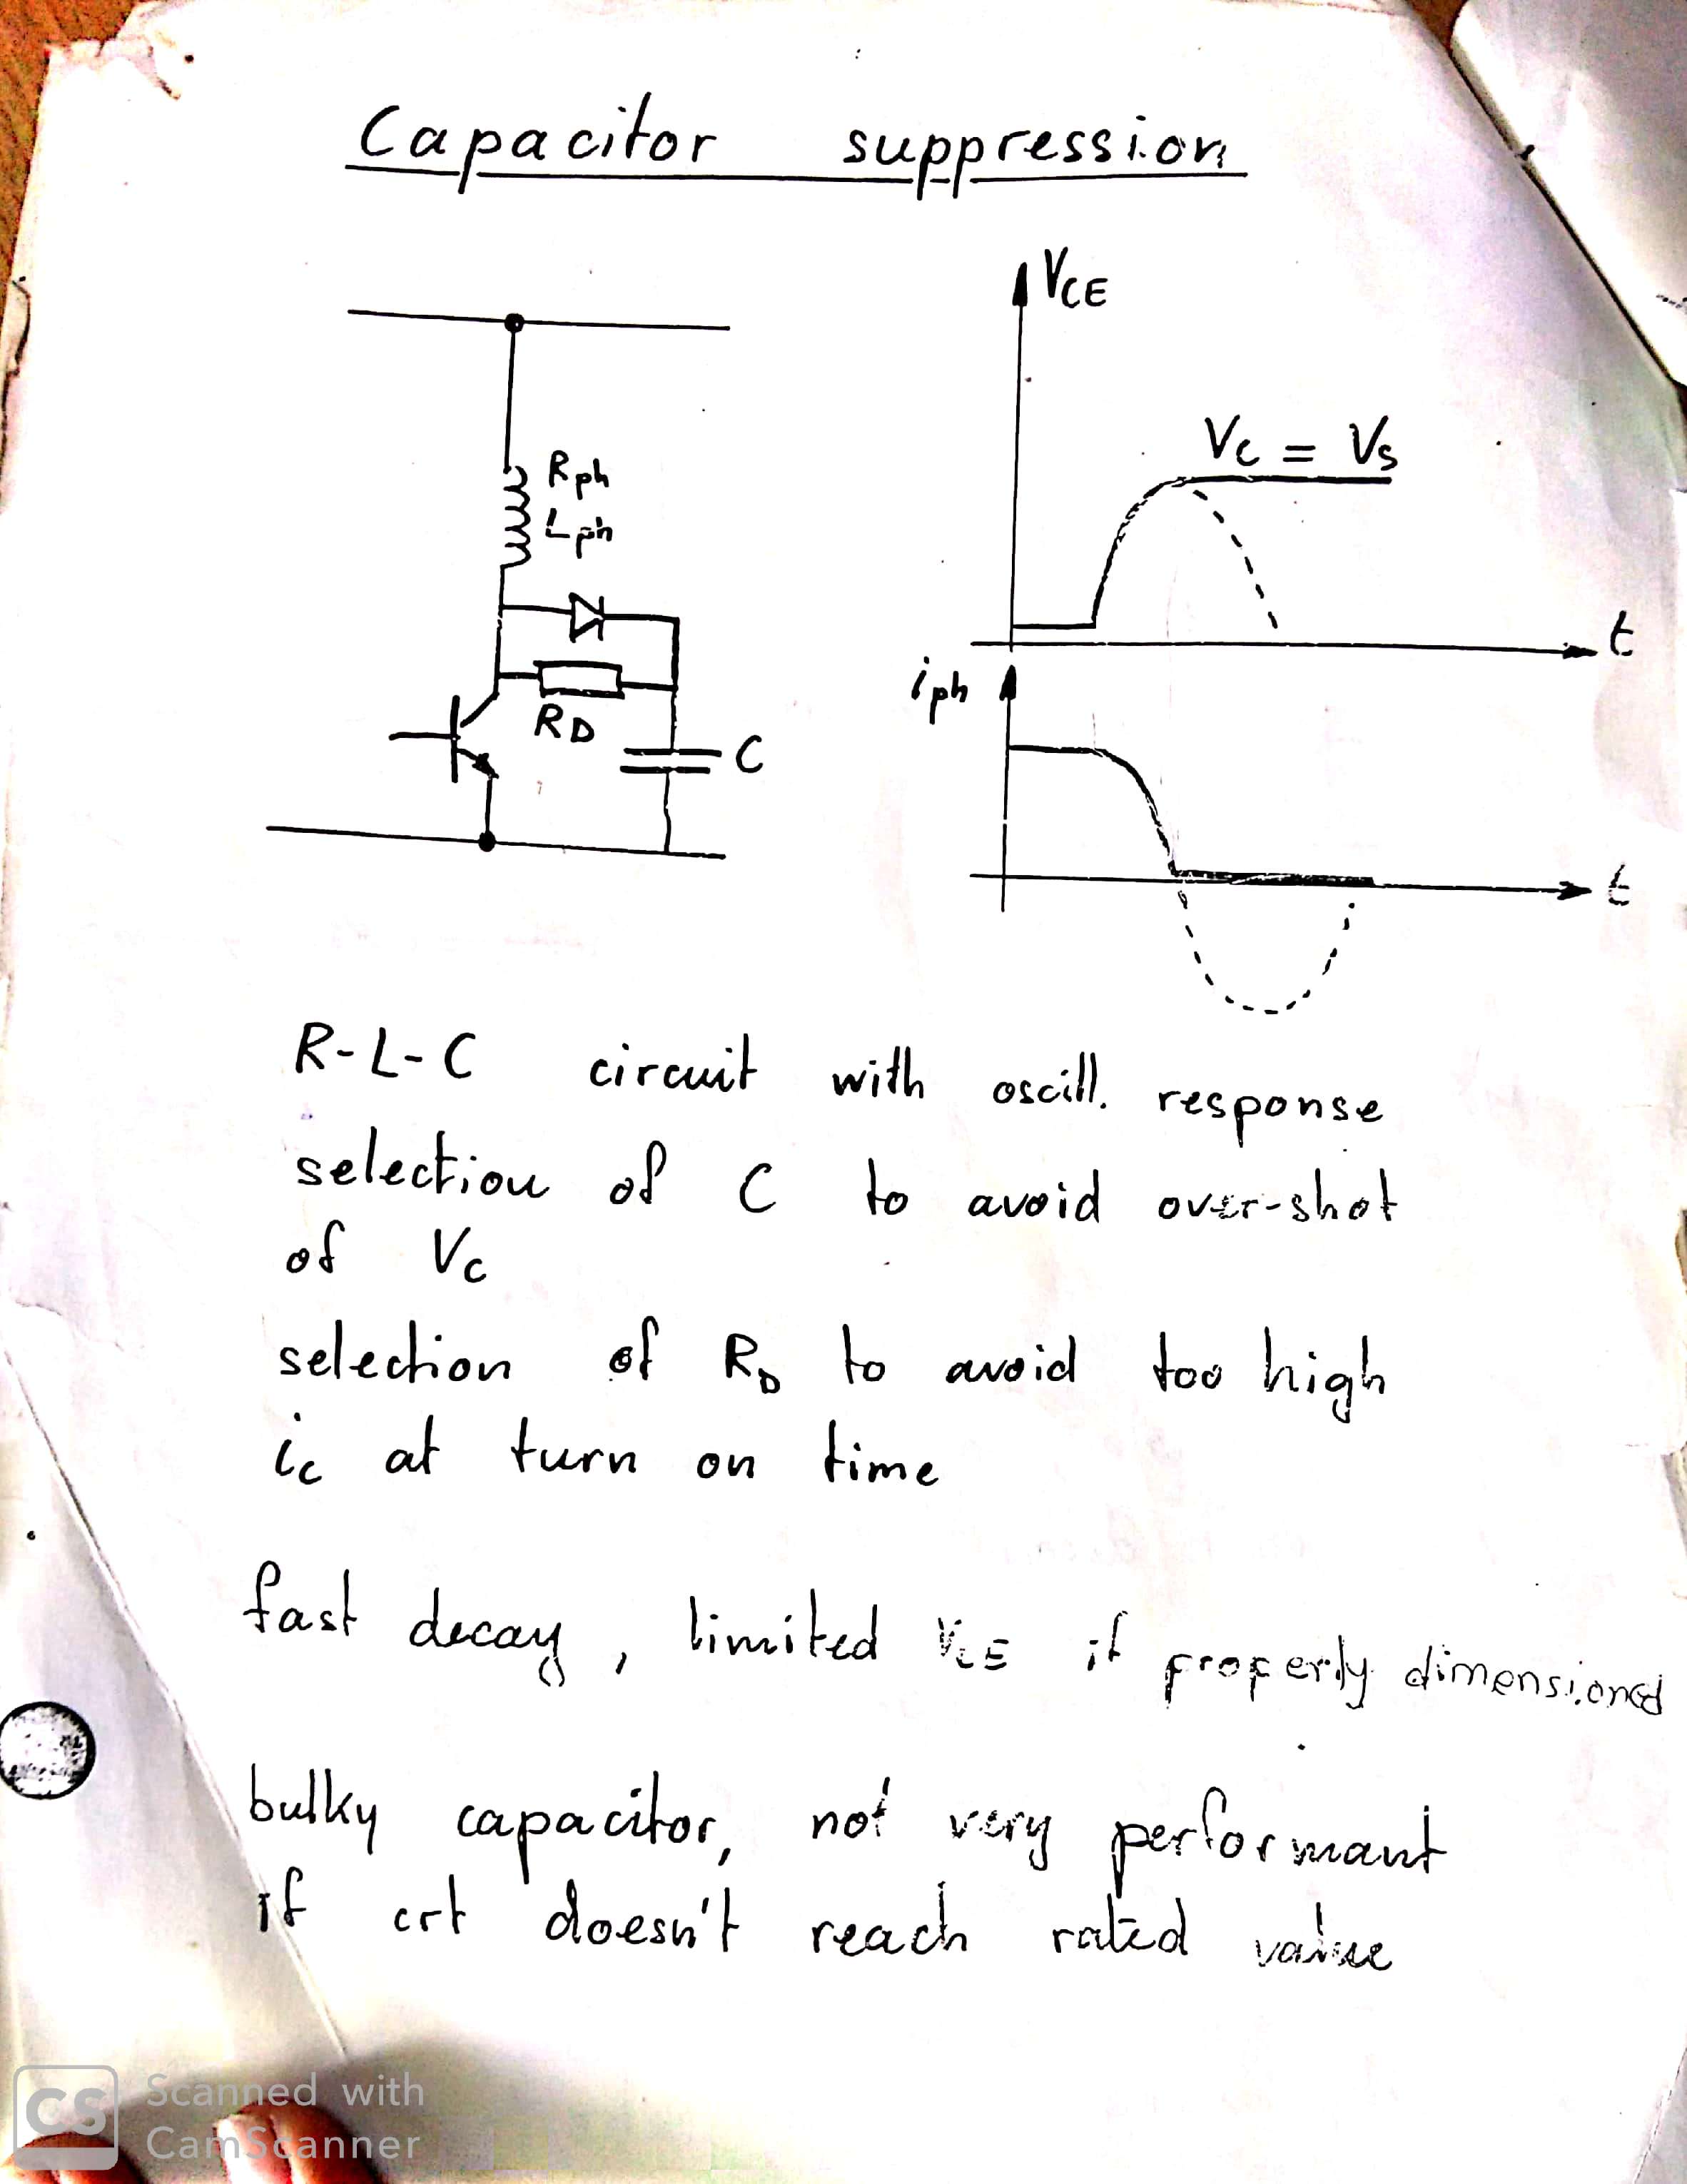 Capacitor suppression
VCE
Rph
Lph
VC = VS
t
iph
RD
C
t
R-L-C circuit with oscill. response
selection of C to avoid over-shot
of VC
selection of RD to avoid too high
ic at turn on time
fast decay, limited VCE if properly dimensioned
bulky capacitor, not very performant
if crt doesn't reach rated value
CS
Scanned with
CamScanner